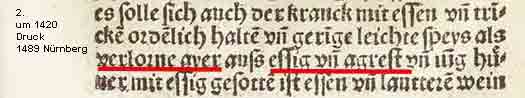 2.
um 1420
Druck
1489 Nürnberg
es solle sich auch der kranck mit essen vñ trī-
ckē ordēlich haltē vñ gerīge leichte speys als
verlorne ayer auss essig vñ agrest vñ iūg hů-
ner, mit essig gesottē ist essen vñ lautterē wein